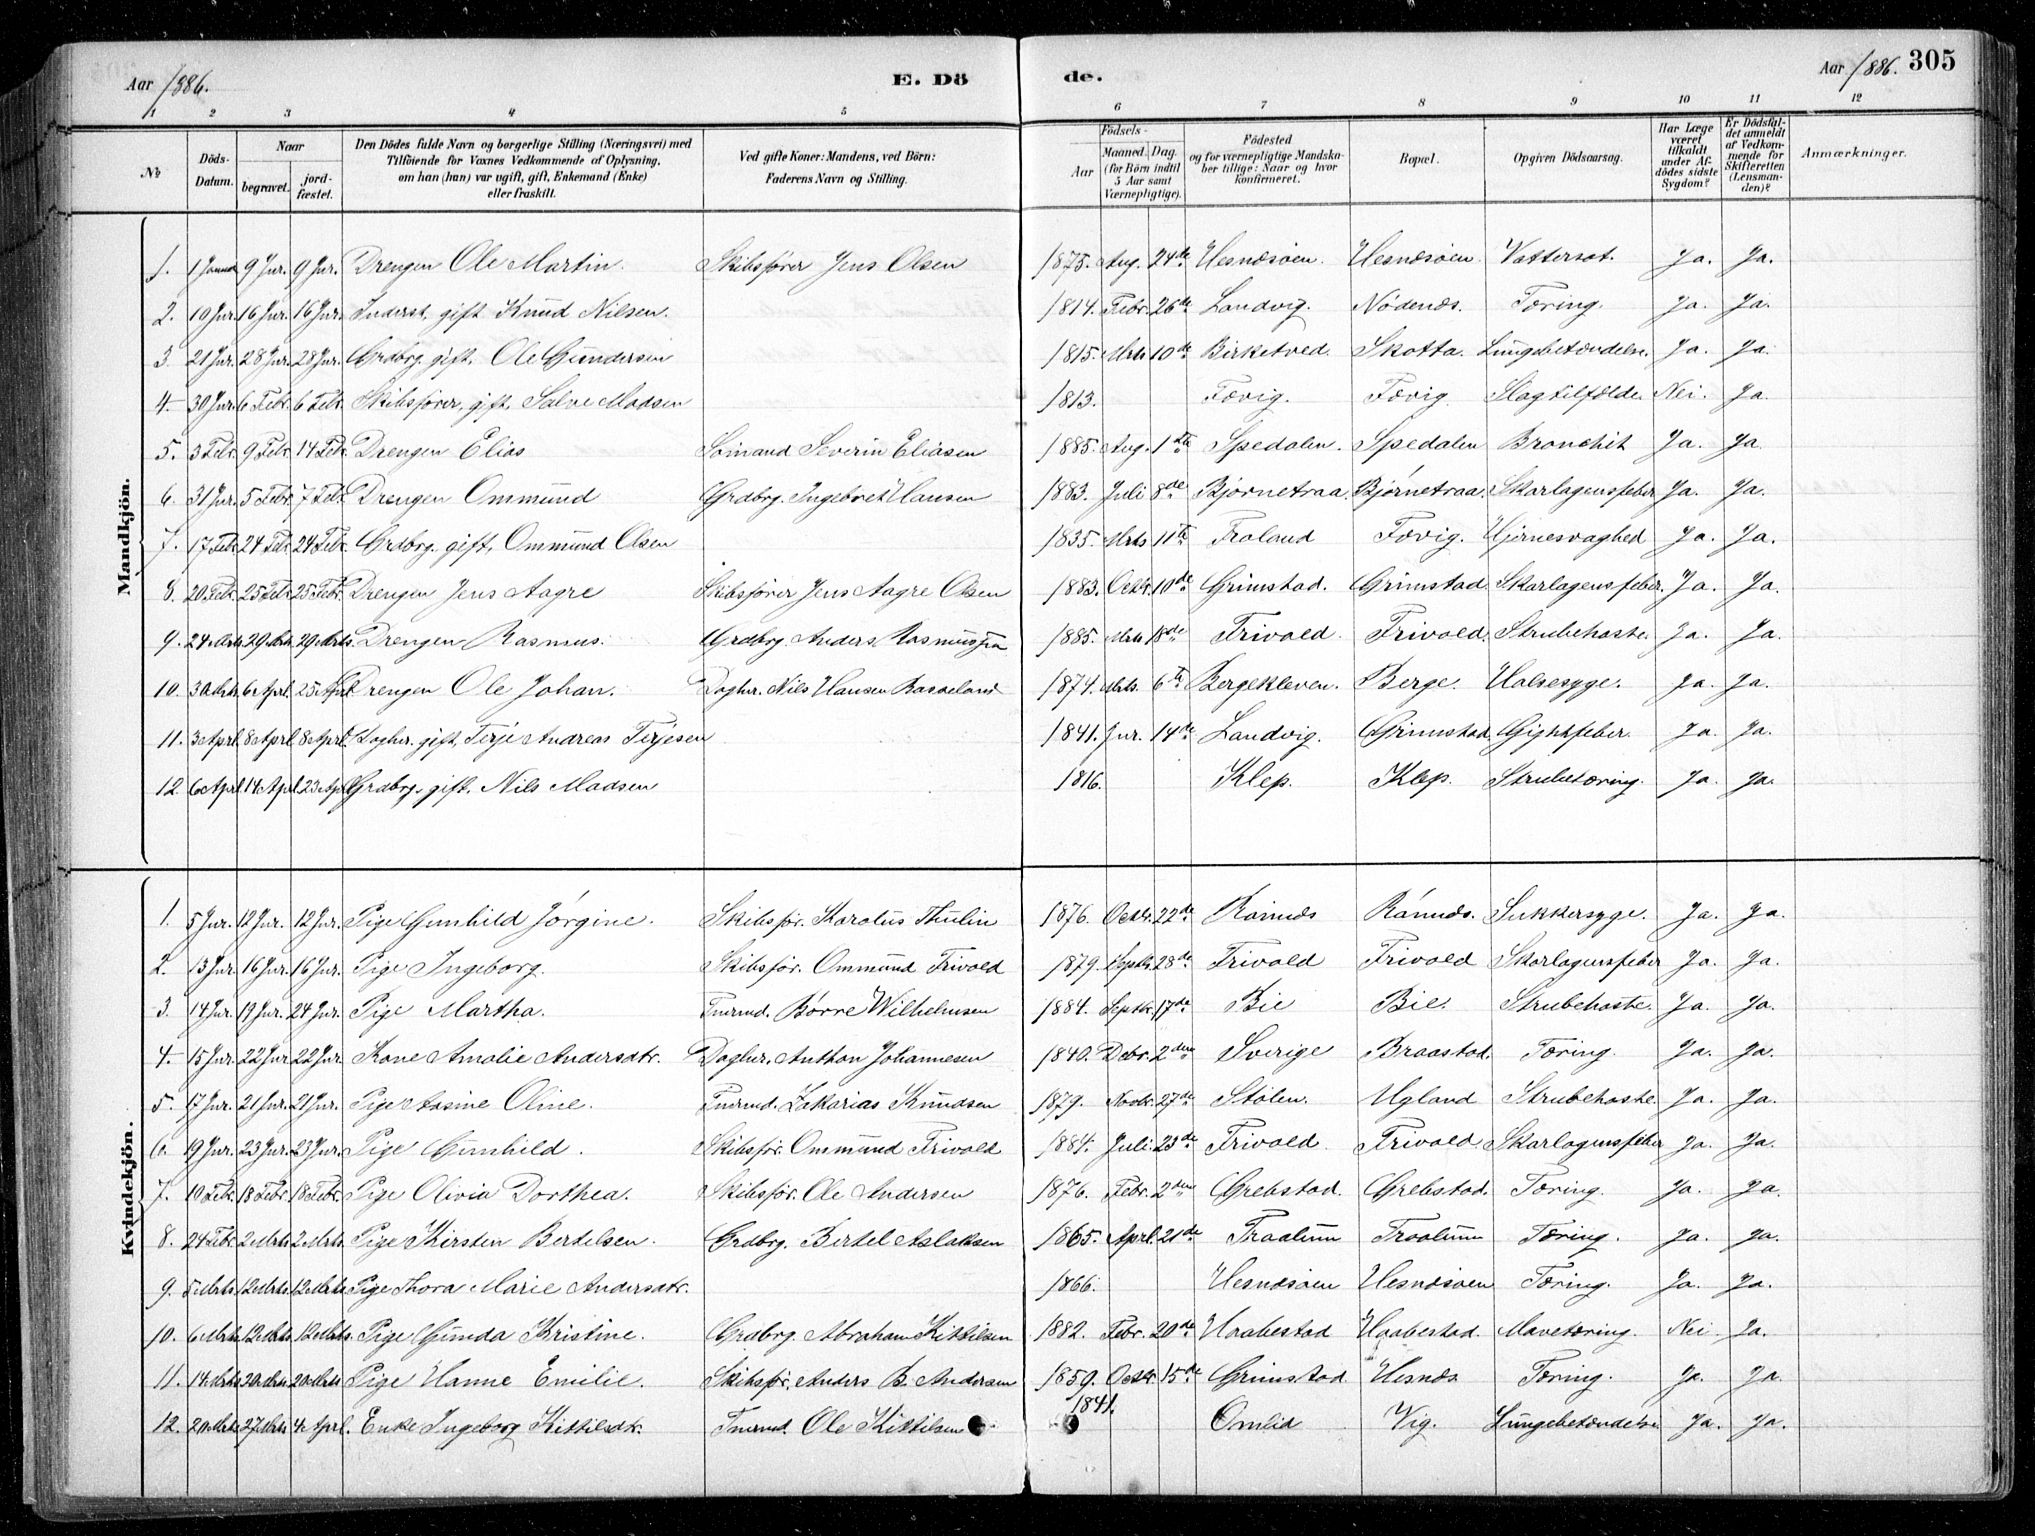 Aar 1886. E. Dö
de. Aar 1886. 305
1 2 3 4 5 6 7 8 9 10 11 12
№ Döds-Datum. Naar begravet. jordfæstet. Den Dödes fulde Navn og borgerlige Stilling (Næringsvei) med Tilföiende for Voxnes Vedkommende af Oplysning, om han (hun) var ugift, gift, Enkemand (Enke) eller fraskilt. Ved gifte Koner: Mandens, ved Börn: Faderens Navn og Stilling. Födsels- Aar Maaned. Dag. (for Börn indtil 5 Aar samt Værnepligtige). Födested og for værnepligtige Mandskaber tillige: Naar og hvor konfirmeret. Bopæl. Opgiven Dödsaarsag. Har Læge været tilkaldt under Afdödes sidste Sygdom? Er Dödsfaldet anmeldt af Vedkommende for Skifteretten (Lensmanden)? Anmærkninger.
Mandkjön.
1. 1 Januar 9 Jnr. 9 Jnr. Drengen Ole Martin. Skibsfører Jens Olsen 1875. Aug. 24de Hesnæsøen. Hesnæsøen. Vattersot. Ja. Ja.
2. 10 Jnr. 16 Jnr. 16 Jnr. Inderst, gift Knud Nilsen. 1814. Febr. 26de Landvig. Nödenæs. Tæring. Ja. Ja.
3. 21 Jnr. 28 Jnr. 28 Jnr. Grdbrg. gift, Ole Gundersen 1815. Mrts 10de Birketved. Skotta. Lungebetændelse. Ja. Ja.
4. 30 Jnr. 6 Febr. 6 Febr. Skibsfører, gift, Salve Madsen 1813. Fævig. Fævig. Slagtilfælde. Nei. Ja.
5. 3 Febr. 9 Febr. 14 Febr. Drengen Elias Sømand Severin Eliasen 1885. Aug. 1ste Spedalen. Spedalen Bronchit Ja. Ja.
6. 31 Jnr. 5 Febr. 7 Febr. Drengen Ommund Grdbrg. Ingebret Hansen 1883. Juli 8de Bjørnetraa. Bjørnetraa. Skarlagensfeber Ja. Ja.
7. 17 Febr. 24 Febr. 24 Febr. Grdbrg. gift, Ommund Olsen 1835. Mrts 11te Froland Fævig. Hjernesvaghed Ja. Ja.
8. 20 Febr. 25 Febr. 25 Febr. Drengen Jens Aagre Skibsfører Jens Aagre Olsen 1883. Octbr. 10de Grimstad. Grimstad. Skarlagensfeber. Ja. Ja.
9. 24 Mrts. 29 Mrts. 29 Mrts. Drengen Rasmus. Grdbrg. Anders Rasmussen 1885. Mrts 18de Frivold. Frivold. Strubehoste. Ja. Ja.
10. 30 Mrts. 6 Aprl. 25 Aprl. Drengen Ole Johan. Daghr. Nils Hansen Rosseland 1874. Mrts. 6te Bergekleven. Berge. Halsesyge. Ja. Ja.
11. 3 Aprl. 8 Aprl. 8 Aprl. Daghr. gift, Terje Andreas Terjesen 1841. Jnr. 14de Landvig. Grimstad. Gigtfeber. Ja. Ja.
12. 6 Aprl. 14 Aprl. 23 Apr. Grdbrg., gift, Nils Madsen 1816. Klep. Klep. Strubetæring. Ja. Ja.
Kvindekjön.
1. 5 Jnr. 12 Jnr. 12 Jnr. Pige Gunhild Jørgine. Skibsfør. Karolus Thulin 1876. Octbr. 22de Rønnæs Rønnæs. Sukkersyge. Ja. Ja.
2. 13 Jnr. 16 Jnr. 16 Jnr. Pige Ingeborg. Skibsfør. Ommund Frivold 1879. Septbr. 28de Frivold Frivold Skarlagensfeber Ja. Ja.
3. 14 Jnr. 19 Jnr. 24 Jnr. Pige Martha. Tmrmd. Børre Wilhelmsen 1884. Septbr. 17de Bie Bie. Strubehoste. Ja. Ja.
4. 15 Jnr. 22 Jnr. 22 Jnr. Kone Amalie Andersdtr. Daghr. Anthon Johannesen 1840. Decbr. 2den Sverige Braastad. Tæring. Ja. Ja.
5. 17 Jnr. 21 Jnr. 21 Jnr. Pige Aasine Oline. Tmrmd. Zakarias Knudsen 1879. Novbr. 27de Stølen. Ugland Strubehoste. Ja. Ja.
6. 19 Jnr. 23 Jnr. 23 Jnr. Pige Gunhild. Skibsfør. Ommund Frivold 1884. Juli. 23de Frivold Frivold Skarlagensfeber Ja. Ja.
7. 10 Febr. 18 Febr. 18 Febr. Pige Olivia Dorthea. Skibsfør. Ole Andersen 1876. Febr. 2den Grebstad. Grebstad. Tæring. Ja. Ja.
8. 24 Febr. 2 Mrts. 2 Mrts. Pige Kirsten Bertelsen. Grdbrg. Bertel Aslaksen 1865. Aprl. 21de Traalum Traalum Tæring. Ja. Ja.
9. 5 Mrts. 12 Mrts. 12 Mrts. Pige Thora Marie Andersdtr. 1866. Hesnæsøen Hesnæsøen Tæring. Ja. Ja.
10. 6 Mrts. 12 Mrts. 12 Mrts. Pige Gunda Kristine. Grdbrg. Abraham Kittilsen 1882. Febr. 20de Haabestad Haabestad. Mavetæring. Nei. Ja.
11. 14 Mrts. 20 Mrts. 20 Mrts. Pige Hanne Emilie. Skibsfør. Anders B. Andersen 1859. Octbr. 15de Grimstad. Hesnæs Tæring. Ja. Ja.
12. 20 Mrts. 27 Mrts. 4 Aprl. Enke Ingeborg Kittilsdtr. Tmrmd. Ole Kittilsen 1841. Omlid Vig. Lungebetændelse Ja. Ja.